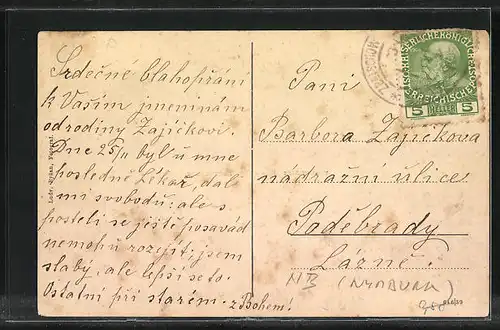 Srdečné blahopřání
k Vašim jmeninám
od rodiny Zajíčkovi.
Dne 25/11 byl u mne
posledně Lékař, dal
mi svobodu: ale s
posteli se ještě posavád
nemohu rozejít; jsem
slabý, ale lepší se to.
Ostatní při starém. z Bohem!
Paní
Barbora Zajíčkova
nádražní ulice
Poděbrady
Lázně.
(NYMBURK)
KAISERLICHE KÖNIGLICHE
ÖSTERREICHISCHE POST
5 HELLER 5